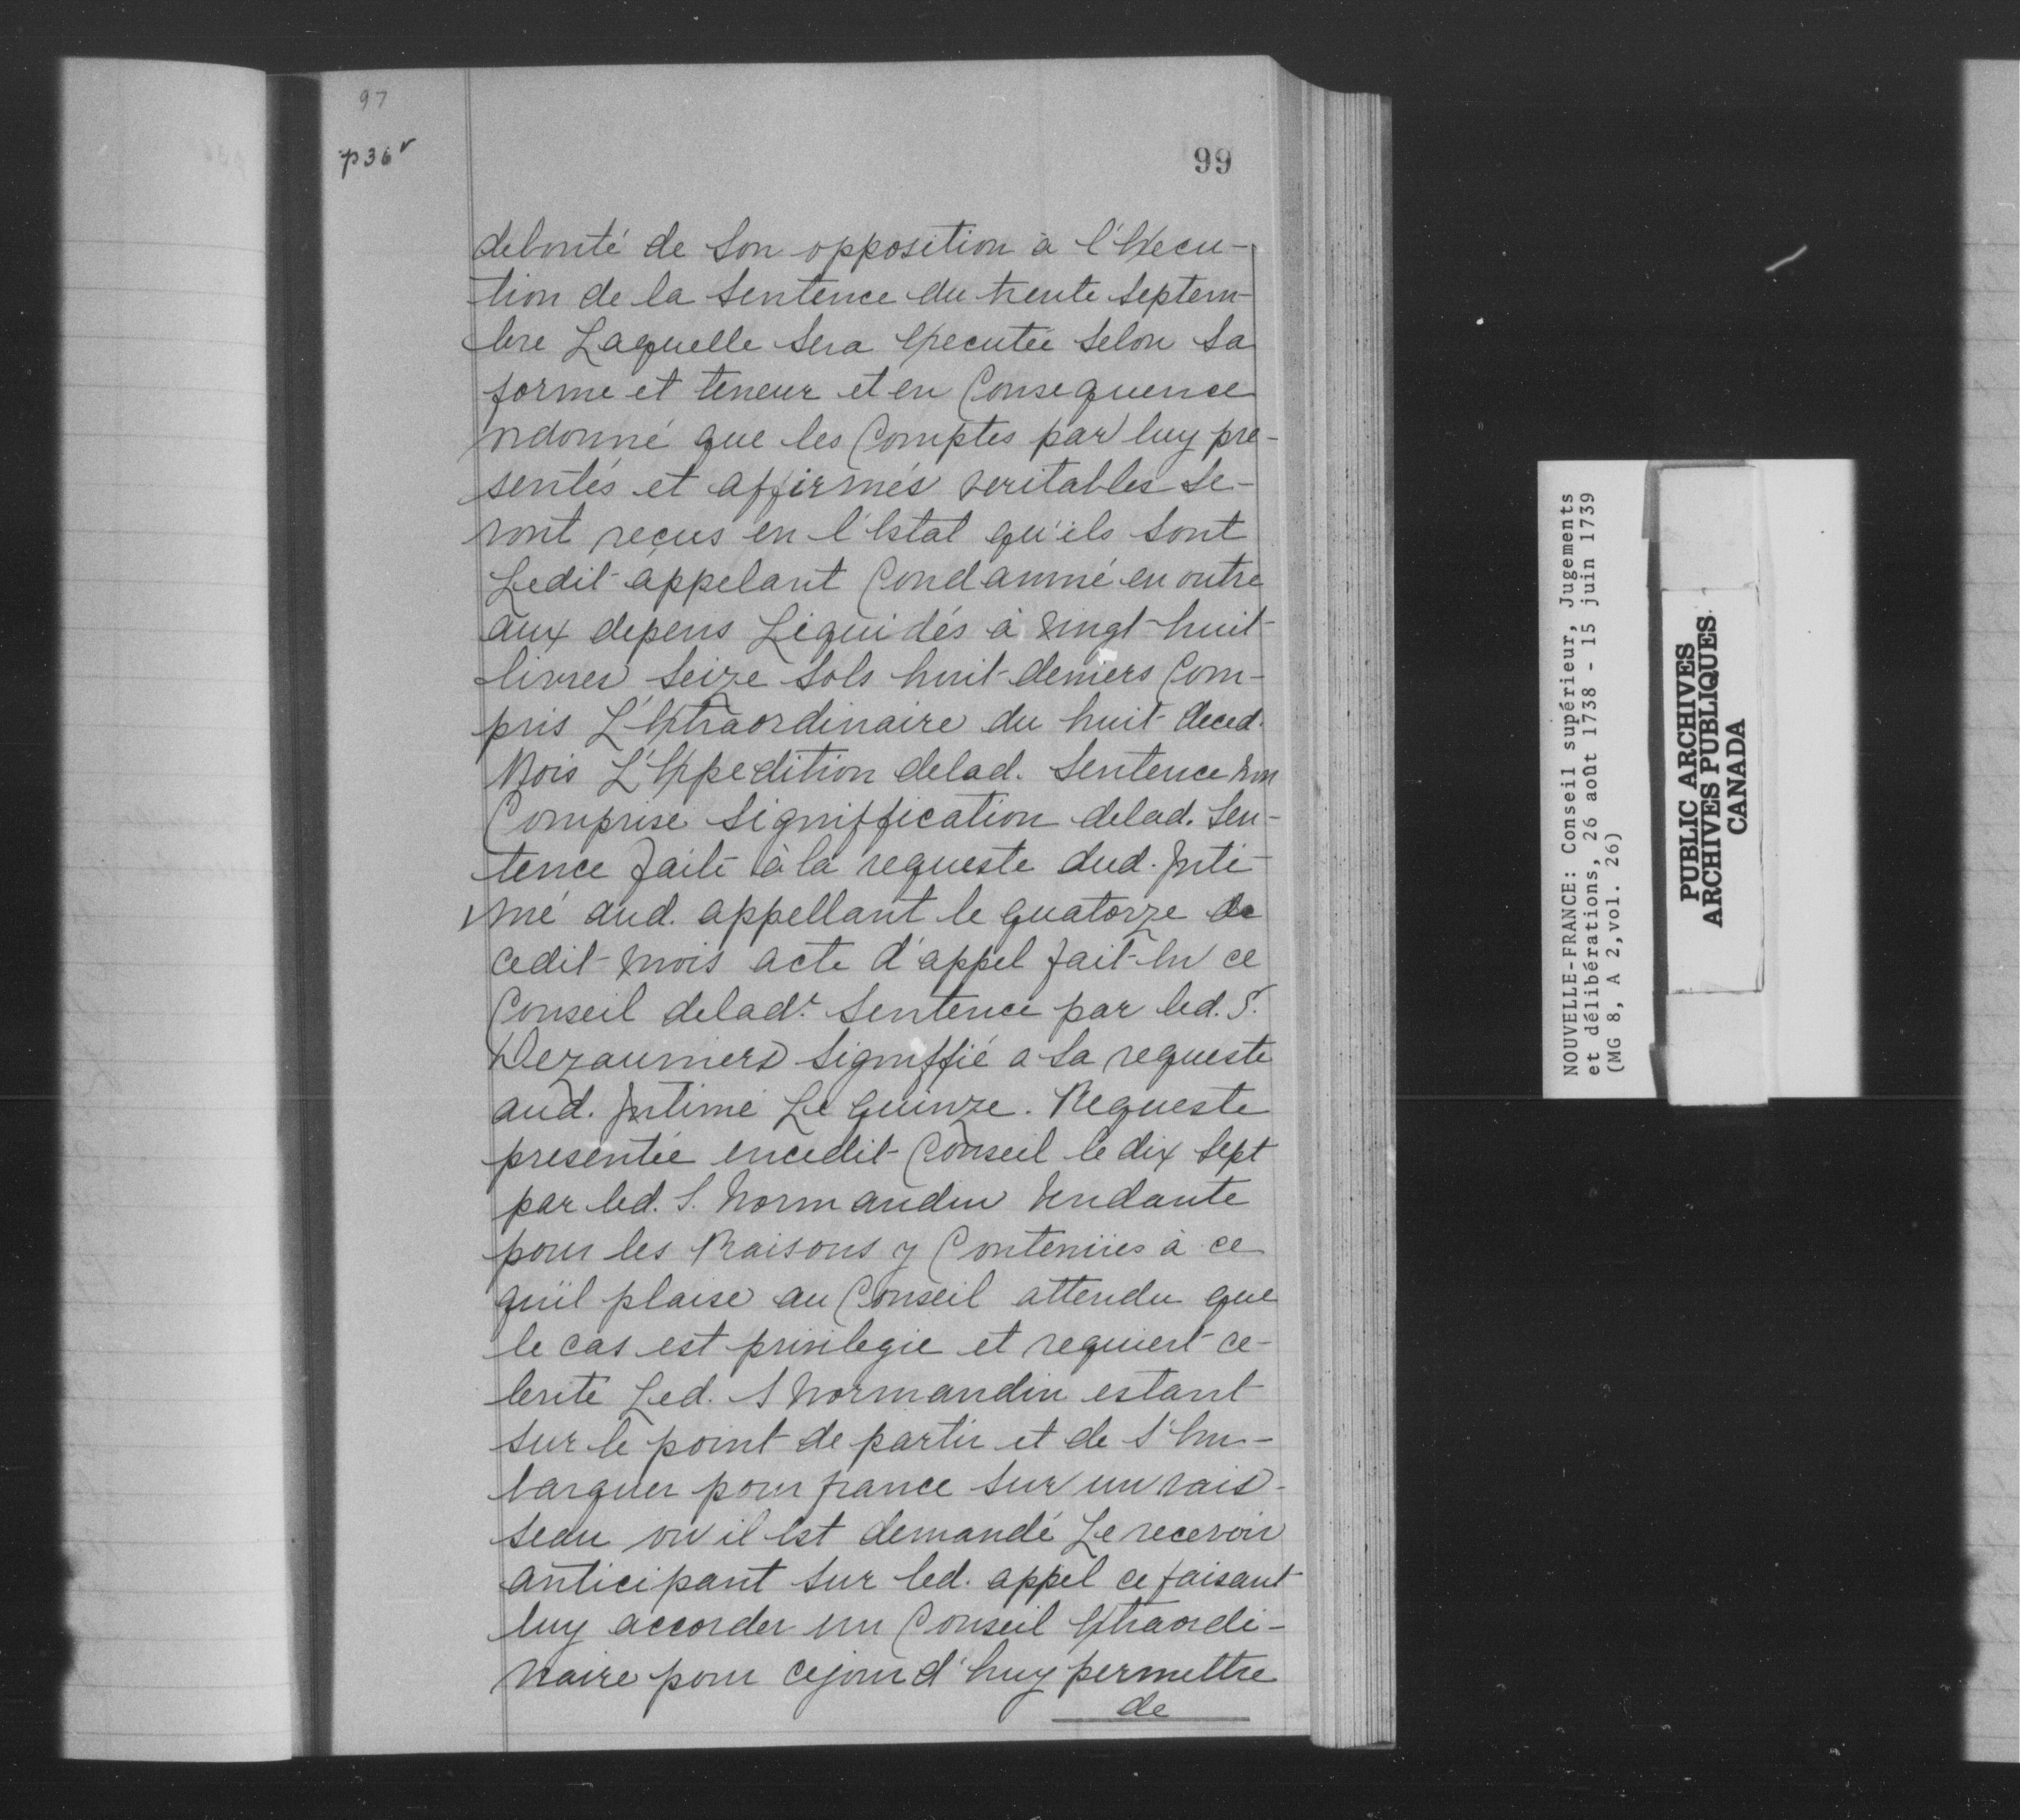 97
p36v
99
debouté de Son opposition à l'Execu-
tion de la Sentence du trente Septem-
bre Laquelle Sera Executée Selon Sa
forme et teneur et en Consequence
ordonné que les Comptes par luy pre-
sentés et affirmés veritables Se-
ront reçus en l'Estat qu'ils Sont
Ledit appelant Condamné en outre
aux depens Liquidés à Vingt-huit
livres Seize Sols huit deniers Com-
pris L'Extraordinaire du huit deced.
Mois L'Expedition delad. Sentence non
Comprise Signiffication delad. Sen-
tence faite à la requeste dud. Inti-
mé aud. appellant le quatorze de
cedit Mois acte d'appel fait En ce
Conseil delad.t Sentence par led. S.
Dezauniers Signiffié a Sa requeste
aud. Intimé Le Quinze. Requeste
presentée encedit Conseil le dix Sept
par led. S. Normandin tendante
pour les Raisons y Contenües à ce
qu'il plaise au Conseil attendu que
le cas est privilegie et requiert ce-
lerité Led. S Normandin estant
Sur le point de partir et de S'Em-
barquer pour france Sur un vais-
seau ou il Est demandé Le recevoir
anticipant Sur led. appel ce faisant
luy accorder un Conseil Extraordi-
naire pour cejourd'huy permettre
de
NOUVELLE-FRANCE: Conseil supérieur, Jugements
et délibérations, 26 août 1738 - 15 juin 1739
(MG 8, A 2,vol. 26)
PUBLIC ARCHIVES
ARCHIVES PUBLIQUES
CANADA